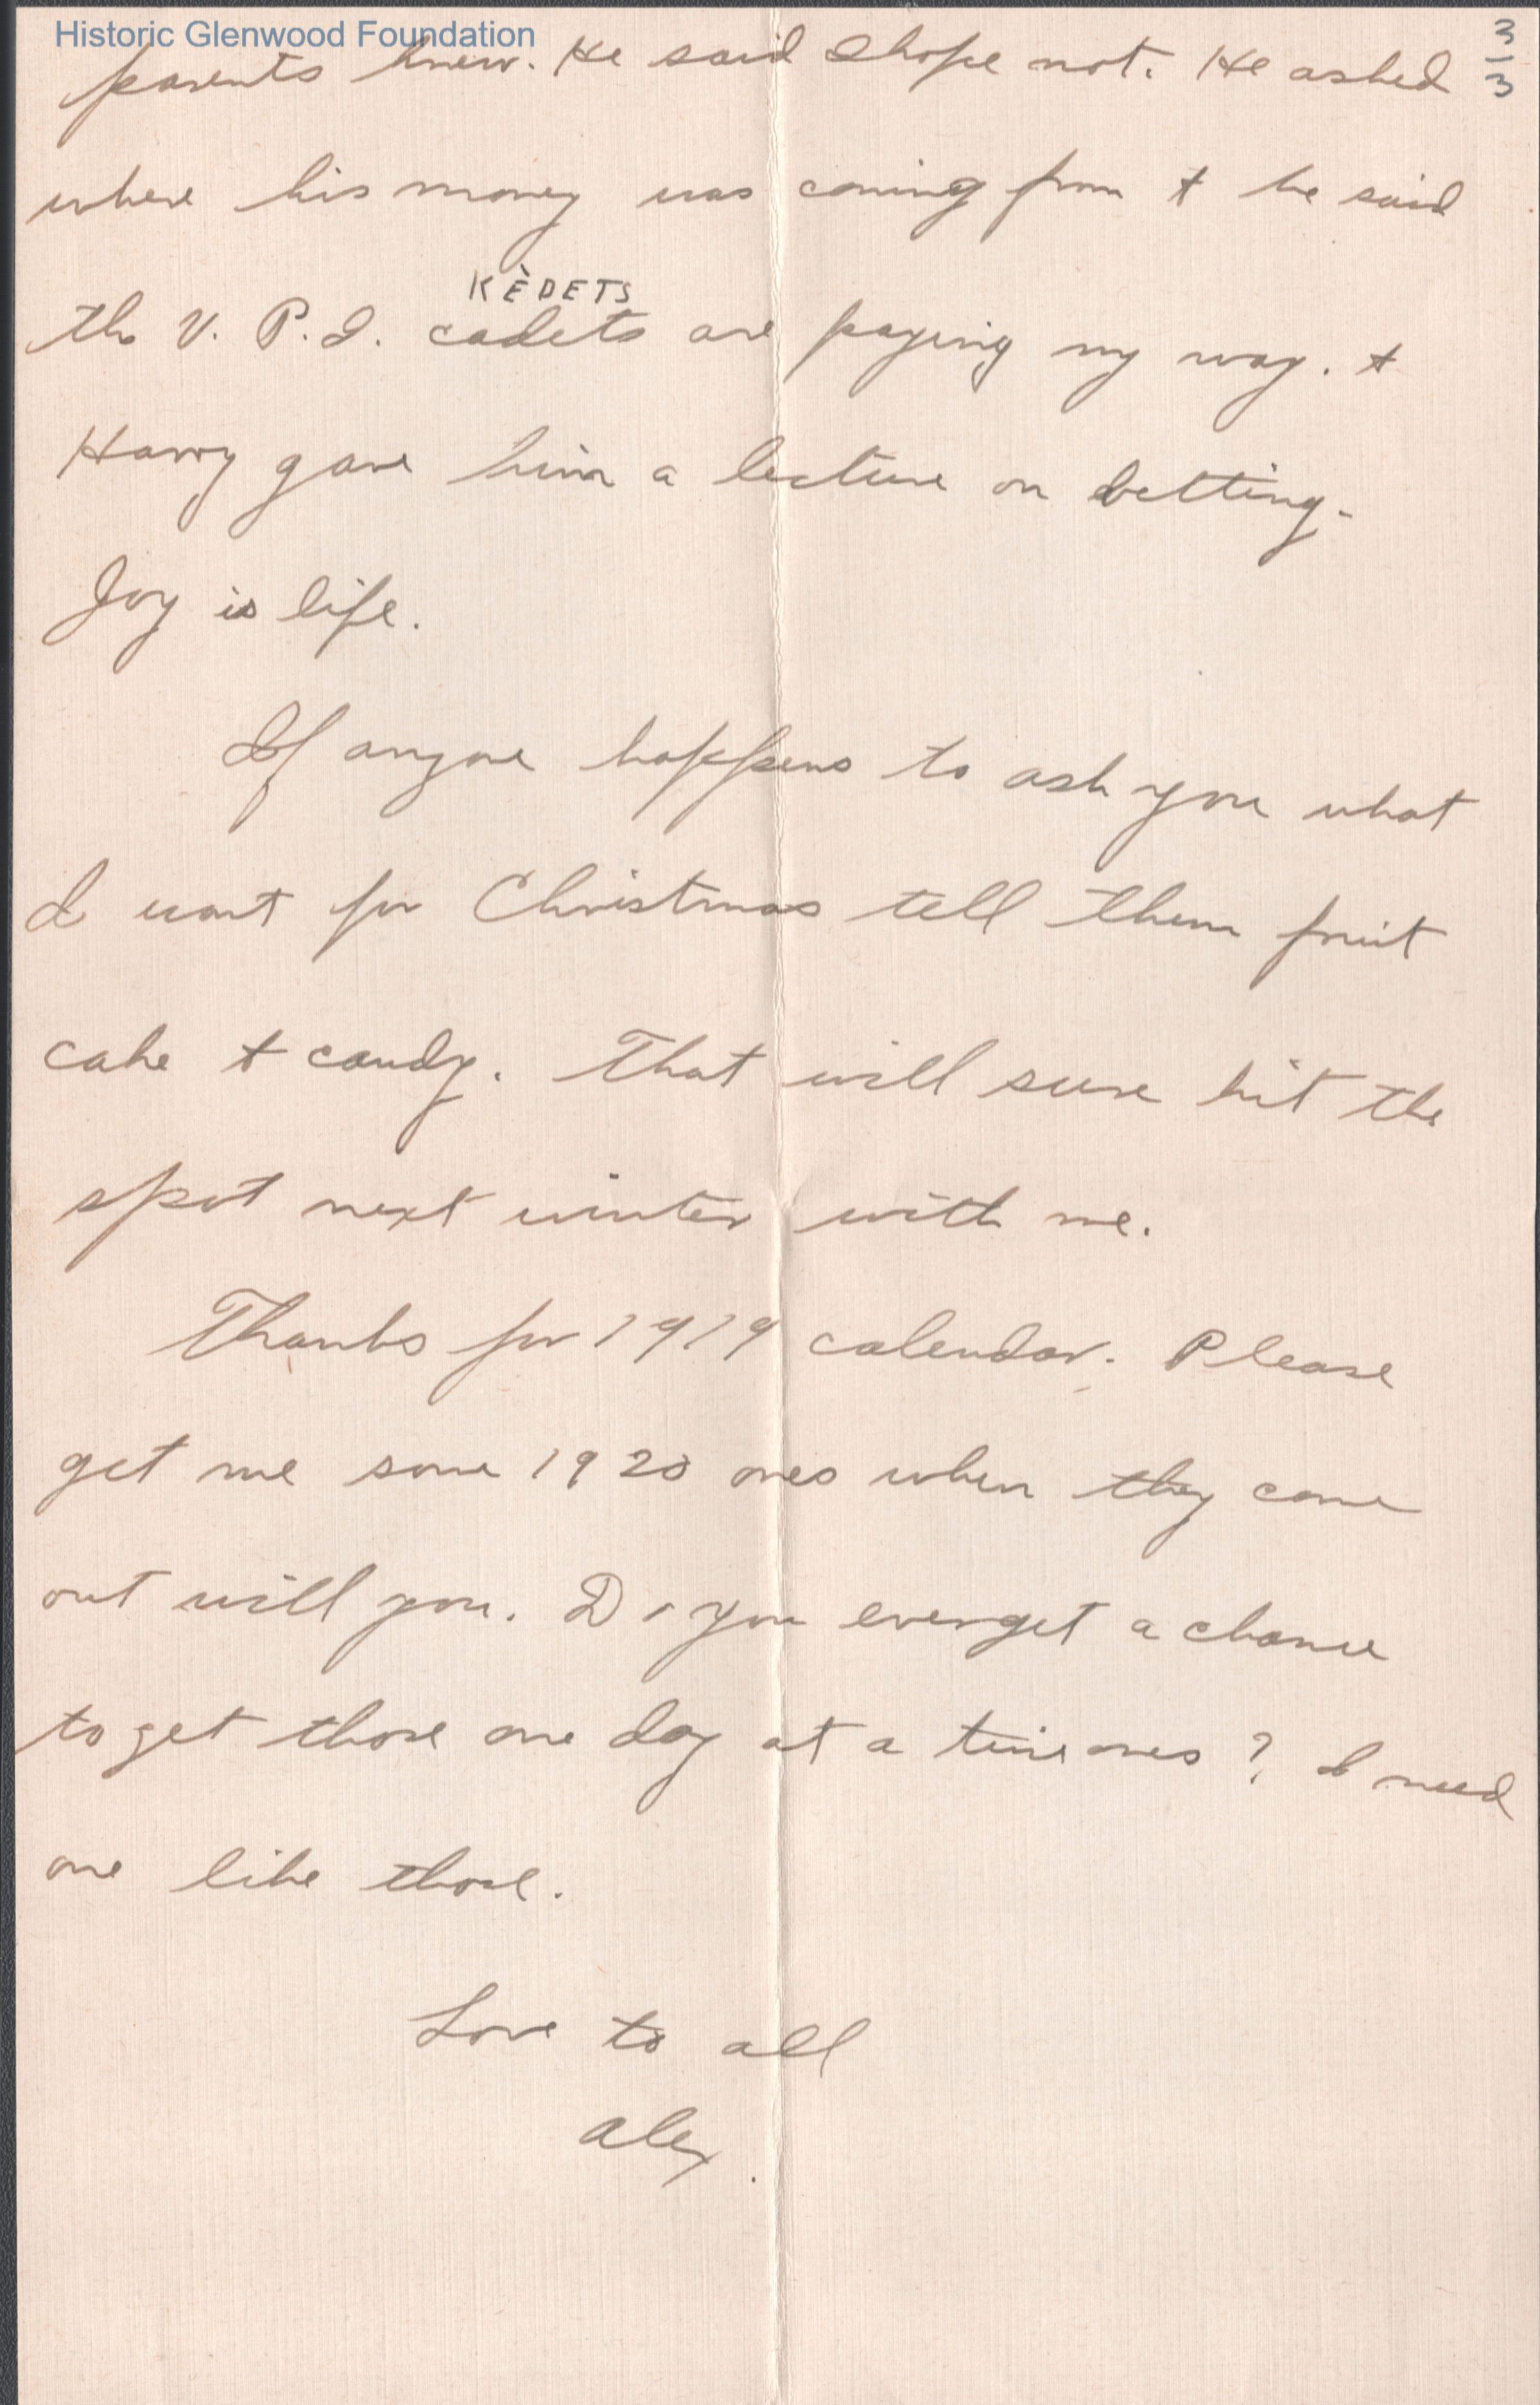 Historic Glenwood Foundation
3/3
parents knew. He said I hope not. He asked
where his money was coming from + he said
KÈDETS
the V. P. I. cadets are paying my way. +
Harry gave him a lecture on betting.
Joy is life.
If anyone happens to ask you what
I want for Christmas tell them fruit
cake + candy. That will sure hit the
spot next winter with me.
Thanks for 1919 calendar. Please
get me some 1920 ones when they come
out will you. Do you ever get a chance
to get those one day at a time ones? I need
one like those.
Love to all
Alex.